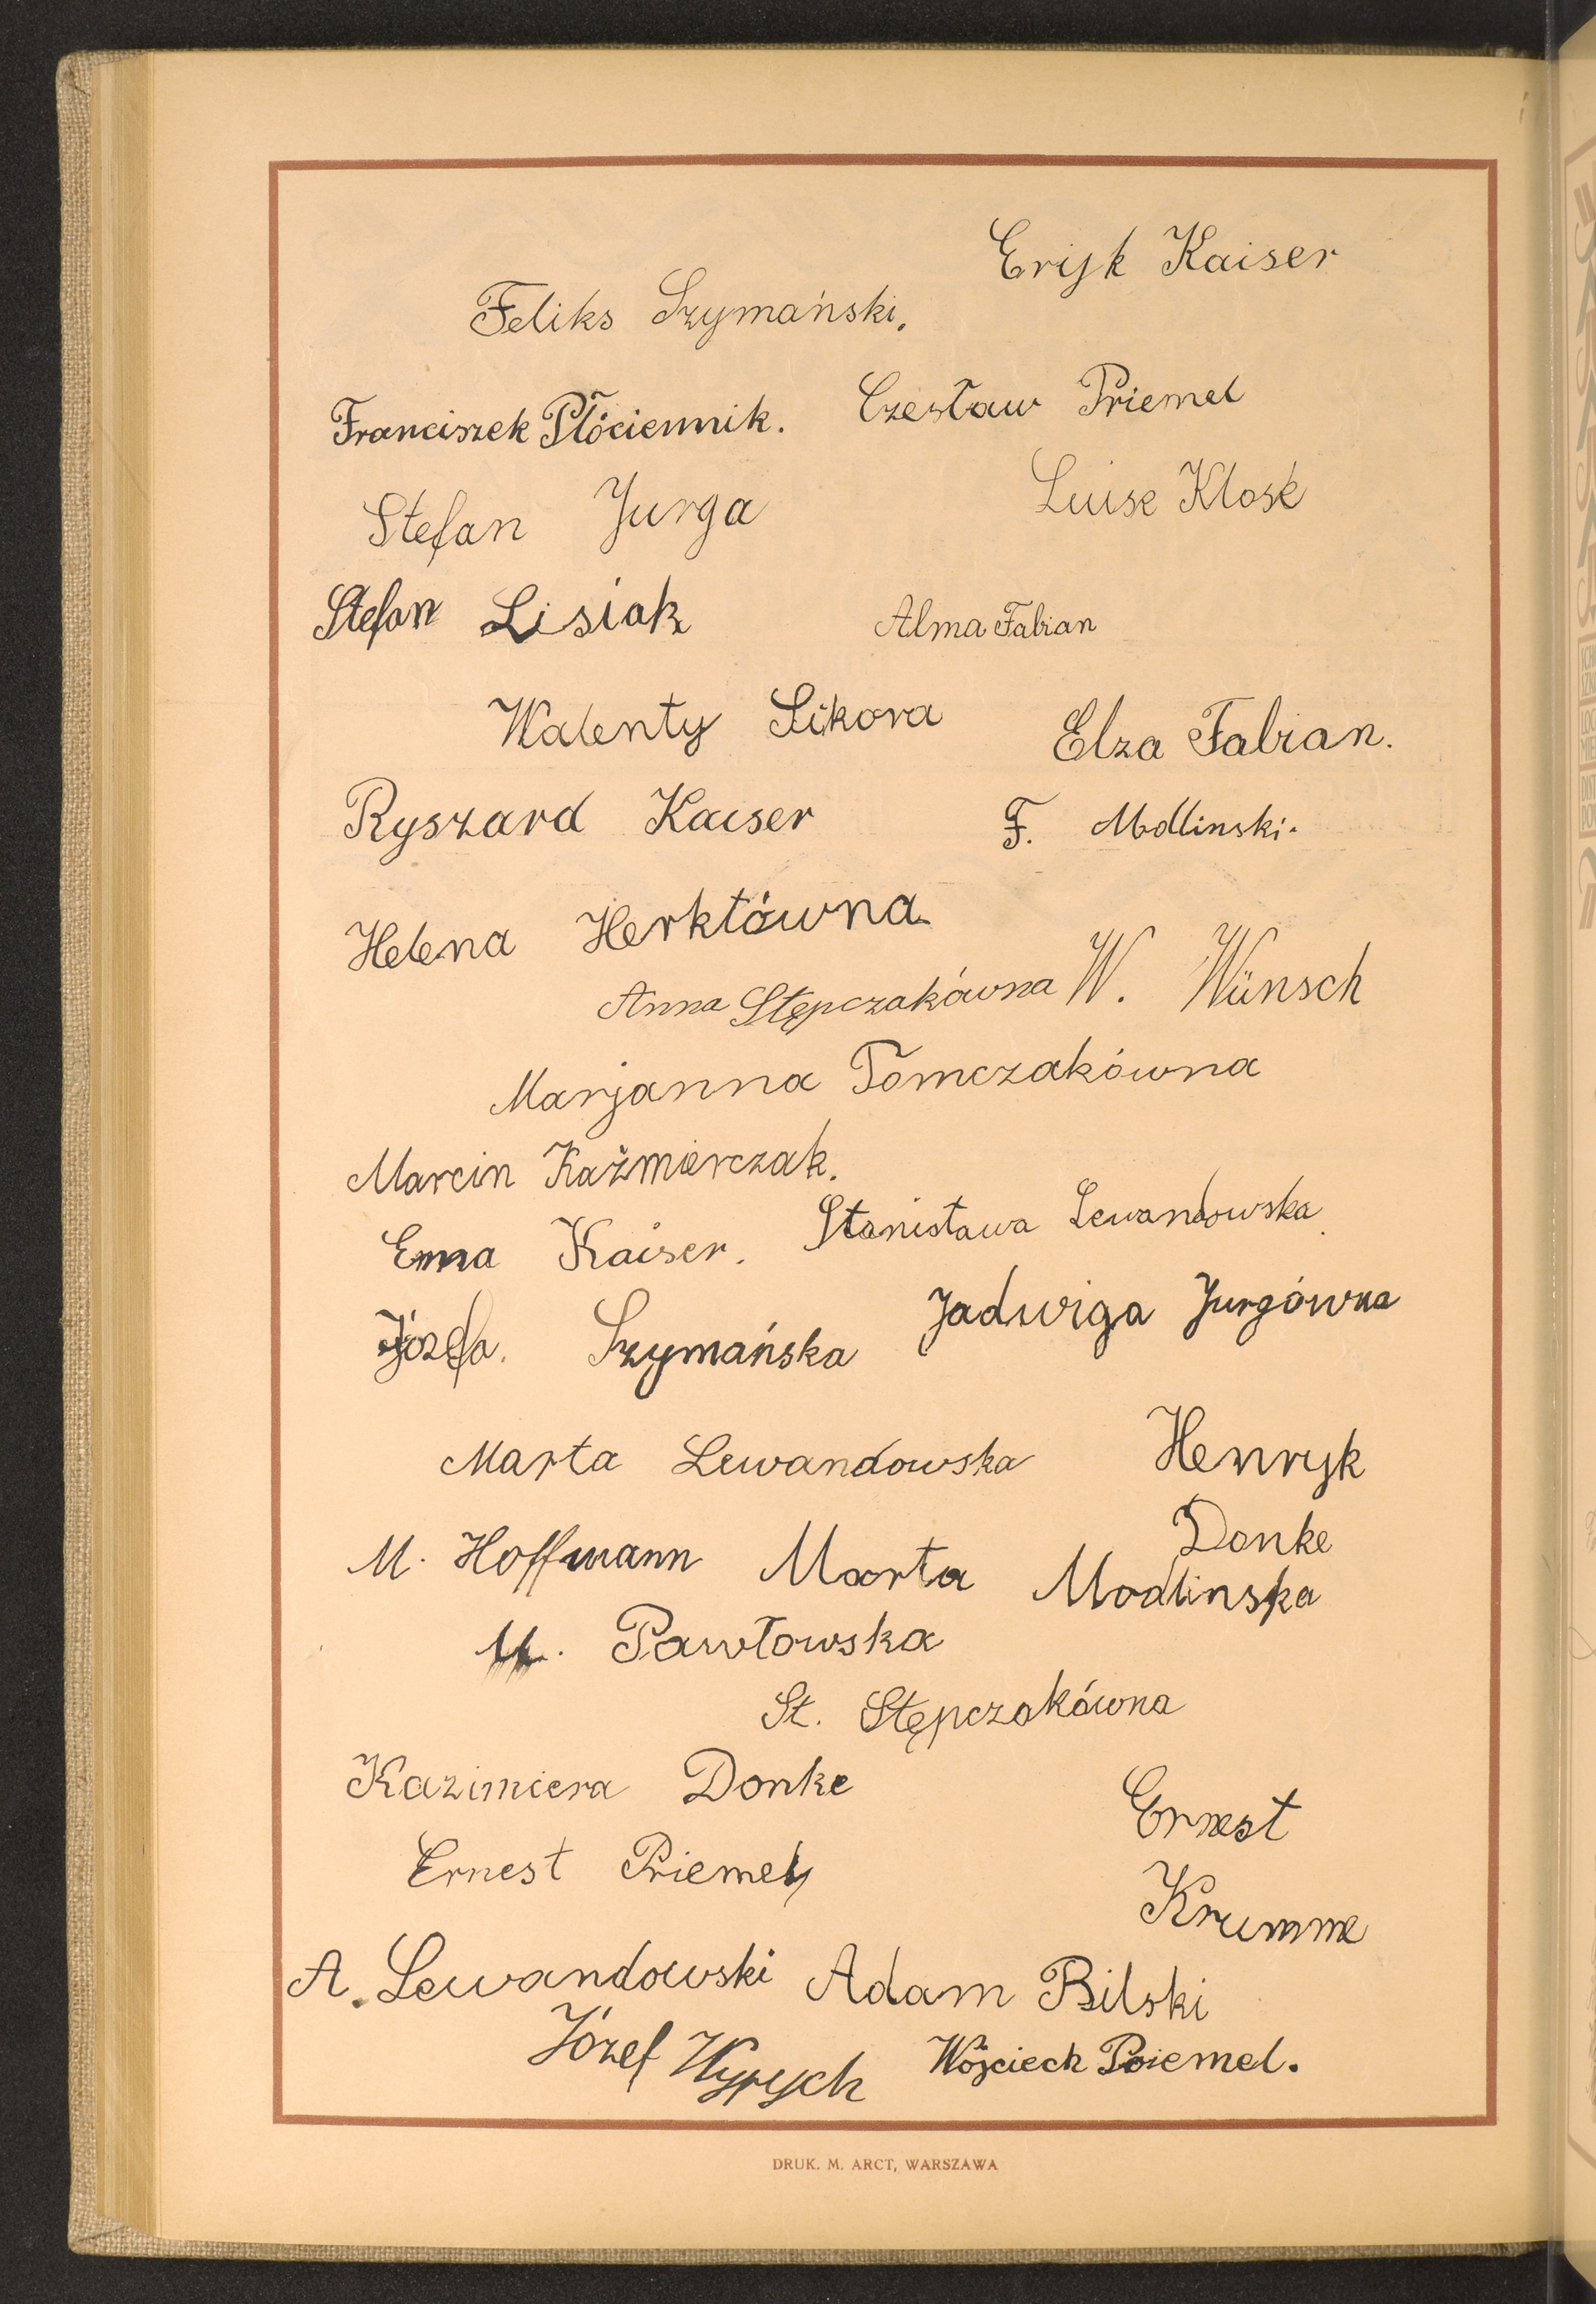 Eryk Kaiser
Feliks Szymański.
Franciszek Płóciennik. Czesław Priemel
Stefan Jurga Luise Klose
Stefan Lisiak Alma Fabian
Walenty Sikora Elza Fabian.
Ryszard Kaiser F. Modlinski.
Helena Herktówna
Anna Stępczakówna W. Wünsch
Marjanna Tomczakówna
Marcin Kaźmierczak.
Emma Kaiser. Stanisława Lewandowska
Józefa. Szymańska Jadwiga Jurgówna
Marta Lewandowska Henryk
Donke
M. Hoffmann Marta Modlinska
M. Pawłowska
St. Stępczakówna
Kazimiera Donke
Ernest
Ernest Priemel
Krumme
A. Lewandowski Adam Bilski
Józef Wyrych Wójciech Priemel.
DRUK. M. ARCT, WARSZAWA